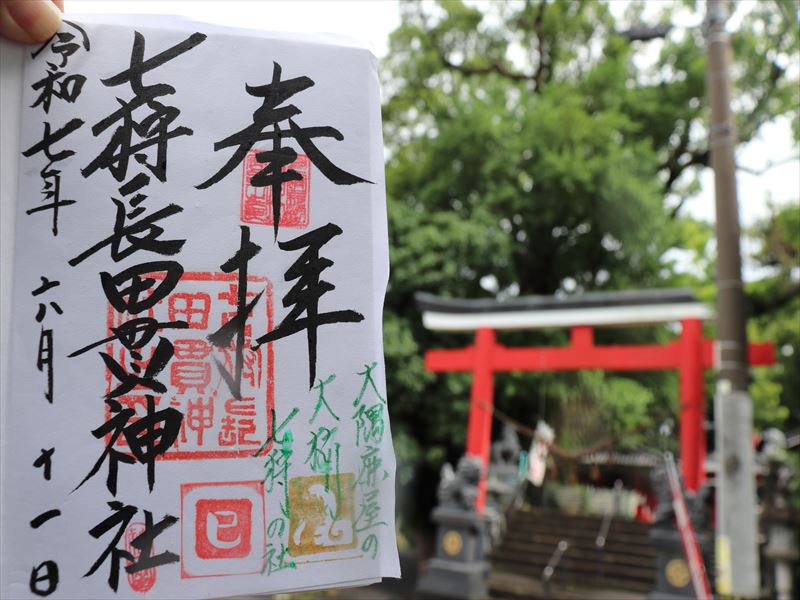 奉拝
大隅鹿屋の
大狩り
七狩りの社
七狩長田貫神社
巳
令和七年 六月 十一日